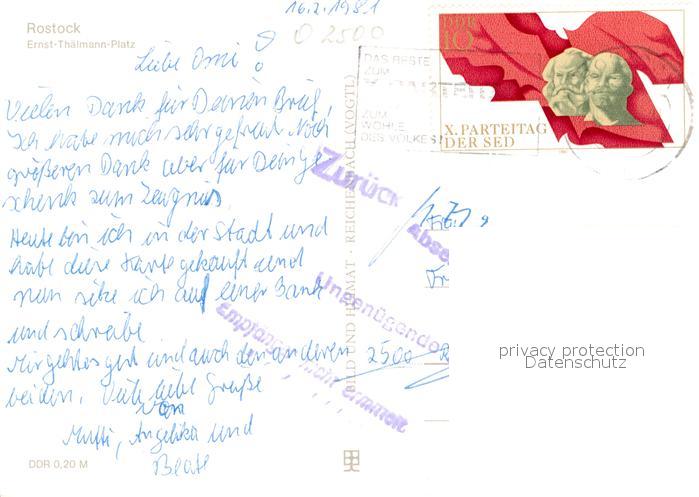 16.2.1981
Rostock
Ernst-Thälmann-Platz
O 2500
Liebe Omi!
Vielen Dank für Deinen Brief,
Ich habe mich sehr gefreut. Noch
größeren Dank aber für Dein Ge
schenk zum Zeugnis.
Heute bin ich in der Stadt und
habe diese Karte gekauft und
nun sitze ich auf einer Bank
und schreibe.
Mir geht es gut und auch den anderen
beiden. Viele liebe Grüße
von
Mutti, Angelika und
Beate
DDR 0,20 M
BILD UND HEIMAT · REICHENBACH (VOGTL)
DDR
10
X. PARTEITAG
DER SED
DAS BESTE
ZUM
ZUM
WOHLE
DES VOLKES!
Zurück
Abse
Ungenügende
Empfänger nicht ermittelt
Fr
2500 R
privacy protection
Datenschutz